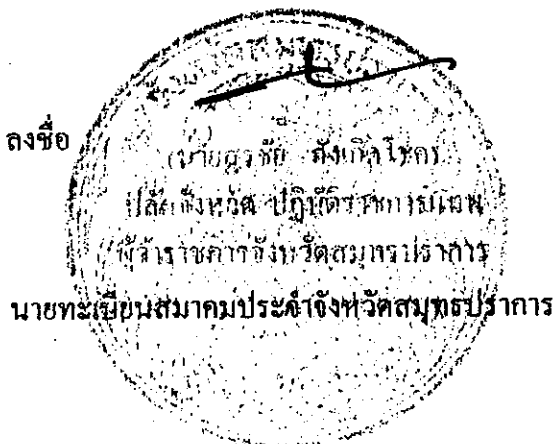 ลงชื่อ
ปลัดจังหวัด ปฏิบัติราชการแทน
ผู้ว่าราชการจังหวัดสมุทรปราการ
นายทะเบียนสมาคมประจำจังหวัดสมุทรปราการ